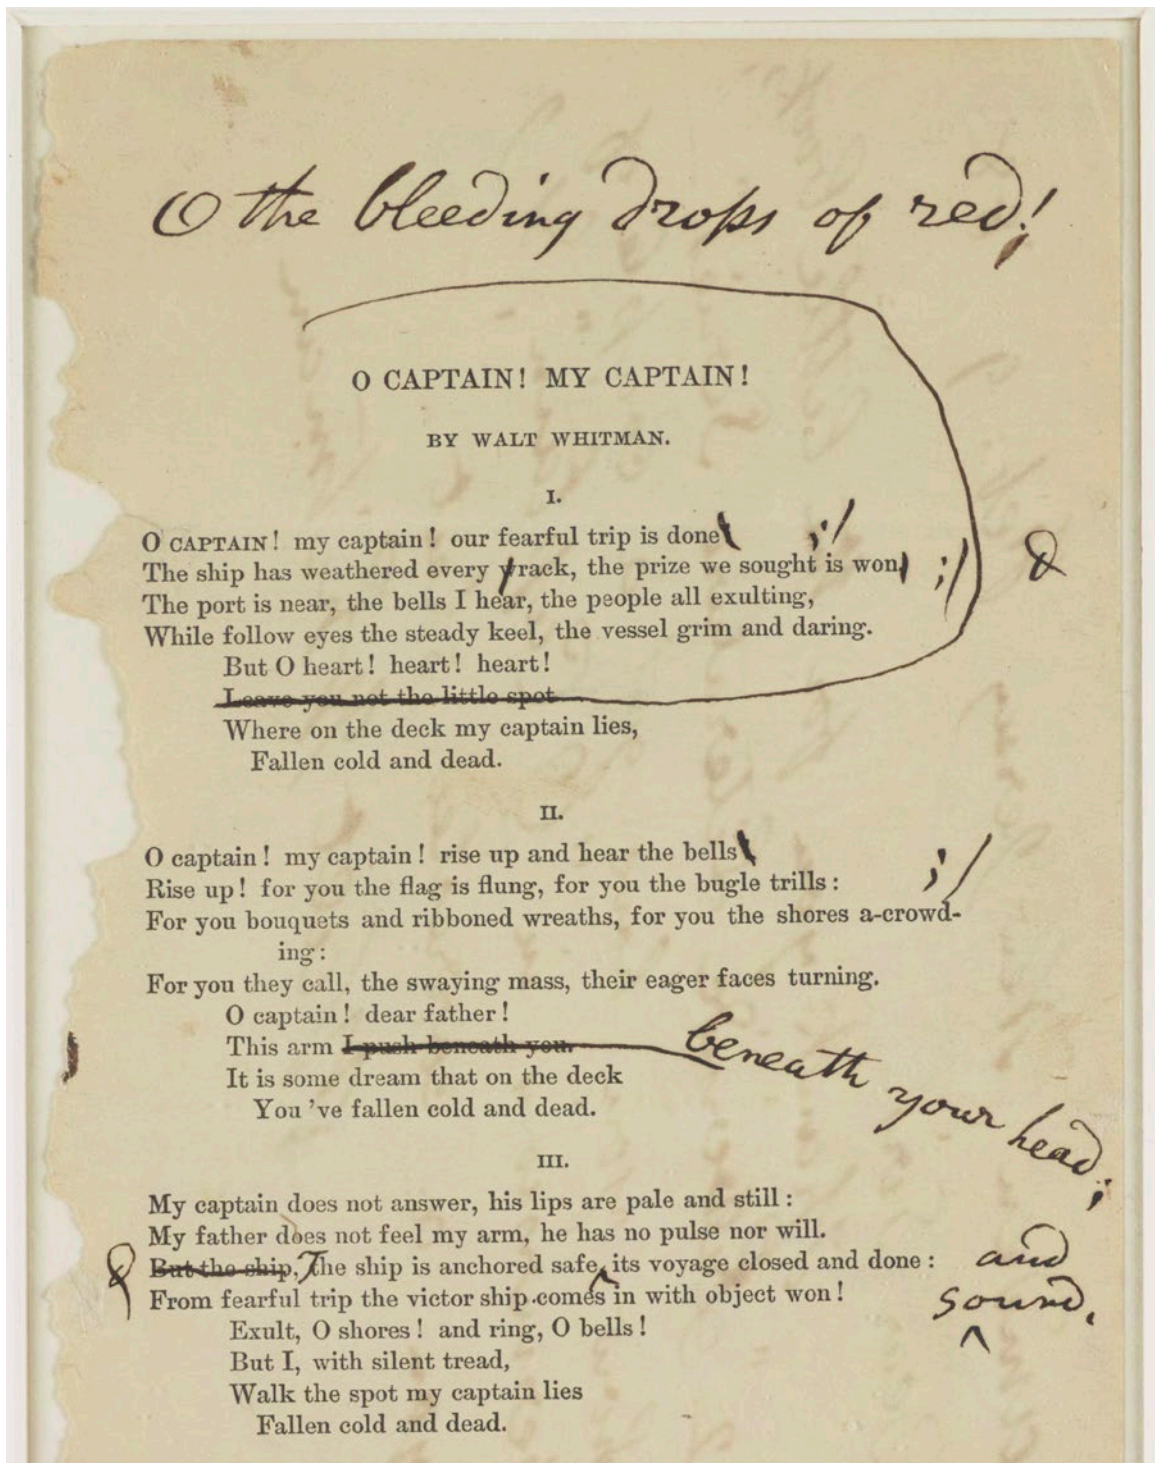 O the bleeding drops of red!
O CAPTAIN! MY CAPTAIN!
BY WALT WHITMAN.
I.
O CAPTAIN! my captain! our fearful trip is done ;/
The ship has weathered every wrack, the prize we sought is won, ;/
The port is near, the bells I hear, the people all exulting,
While follow eyes the steady keel, the vessel grim and daring.
But O heart! heart! heart!
Leave you not the little spot
Where on the deck my captain lies,
Fallen cold and dead.
II.
O captain! my captain! rise up and hear the bells ;/
Rise up! for you the flag is flung, for you the bugle trills:
For you bouquets and ribboned wreaths, for you the shores a-crowd-
ing:
For you they call, the swaying mass, their eager faces turning.
O captain! dear father!
This arm I push beneath you. beneath your head;
It is some dream that on the deck
You 've fallen cold and dead.
III.
My captain does not answer, his lips are pale and still:
My father does not feel my arm, he has no pulse nor will.
But the ship, The ship is anchored safe, its voyage closed and done: and
From fearful trip the victor ship comes in with object won! sound,
Exult, O shores! and ring, O bells!
But I, with silent tread,
Walk the spot my captain lies
Fallen cold and dead.